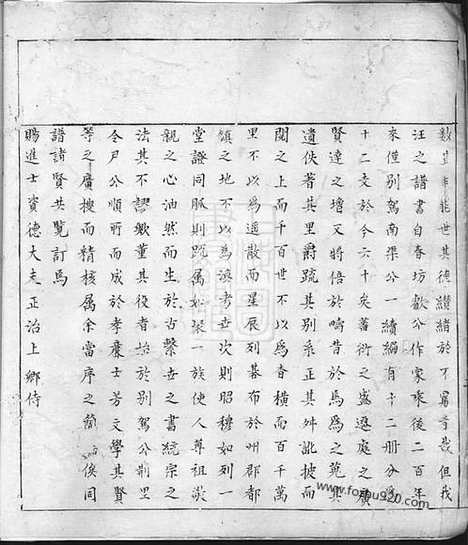 數世非能世其德纘緒於不替者哉但我
汪之譜書自春坊歙公作家乘後二百年
來僅別駕南渠公一續編有十二冊分為
十二支於今六十矣蕃衍之盛遷處之廣
賢達之增又將倍於疇昔於焉為之蒐其
遺佚著其里爵疏其別系正其舛訛披而
閱之上而千百世不以為杳橫而百千萬
里不以為遙散而星辰列碁布於州郡都
鎮之地不以為渙考世次則昭穆如列一
堂證同脈則疏属如聚一族使人尊祖敬
親之心油然而生於古繫世之書統宗之
法其不謬歟董其役者始於別駕公荊里
令尹公順所而成於孝廉士芳文學其賢
等之廣搜而精核属余當序之簡 俟同
譜諸賢共覽訂焉
賜進士資德大夫正治上卿侍
www.fopu920.com